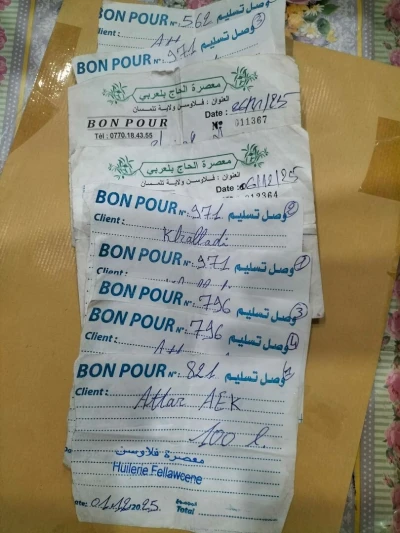 BON POUR N°: 562 وصل تسليم
Client :
BON POUR N°: 971 وصل تسليم 3
معصرة الحاج بلعربي
العنوان : فلاوسن ولاية تلمسان
BON POUR
Date :
Tél : 0770.18.43.55
N° 011367
معصرة الحاج بلعربي
العنوان : فلاوسن ولاية تلمسان
Date : 06/12/25
012364
BON POUR N°: 971 وصل تسليم 2
Client : Khalladi
BON POUR N°: 971 وصل تسليم 1
Client :
BON POUR N°: 796 وصل تسليم 3
BON POUR N°: 796 وصل تسليم
Client :
BON POUR N°: 821 وصل تسليم
Client : Attar AEK
100 l.
معصرة فلاوسن
Huilerie Fellawcene
Date: 01.12.2025
Total